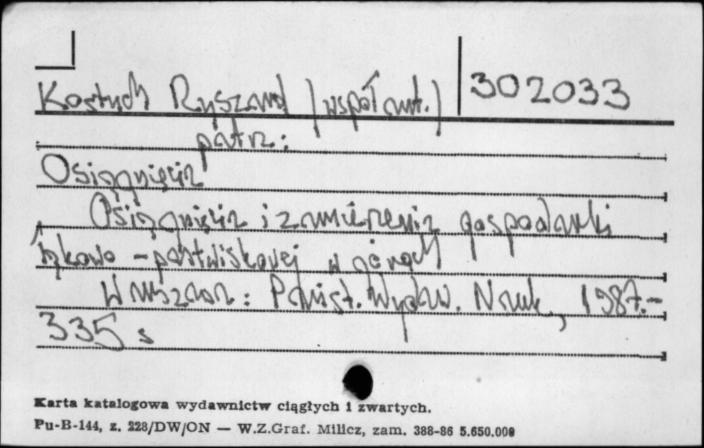 Kostuch Ryszard (współaut.) 302033
patrz:
Osiągnięcia
Osiągnięcia i zamierzenia gospodarki
łąkowo-pastwiskowej w górach
Warszawa: Państ. Wydaw. Nauk, 1987.-
335 s
Karta katalogowa wydawnictw ciągłych i zwartych.
Pu-B-144, z. 228/DW/ON — W.Z.Graf. Milicz, zam. 388-86 5.650.000